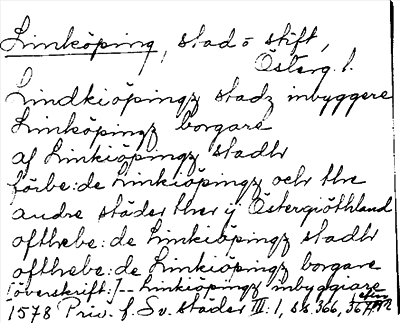 Linköping, stad o stift,
Österg. l.
Lindkiöpingz stadz inbyggere
Linköpingz borgare
af Linkiöpingz stadh
förbe:de Linkiöpingz och the
andre städer ther ÿ Östergiöthland
ofthebe:de Linkiöpingz stadh
ofthebe:de Linkiöpingz borgare
[överskrift:]-- Linkiöpingz inbyggiare
1578 Priv. f. Sv. städer III:1, ss. 366, 367